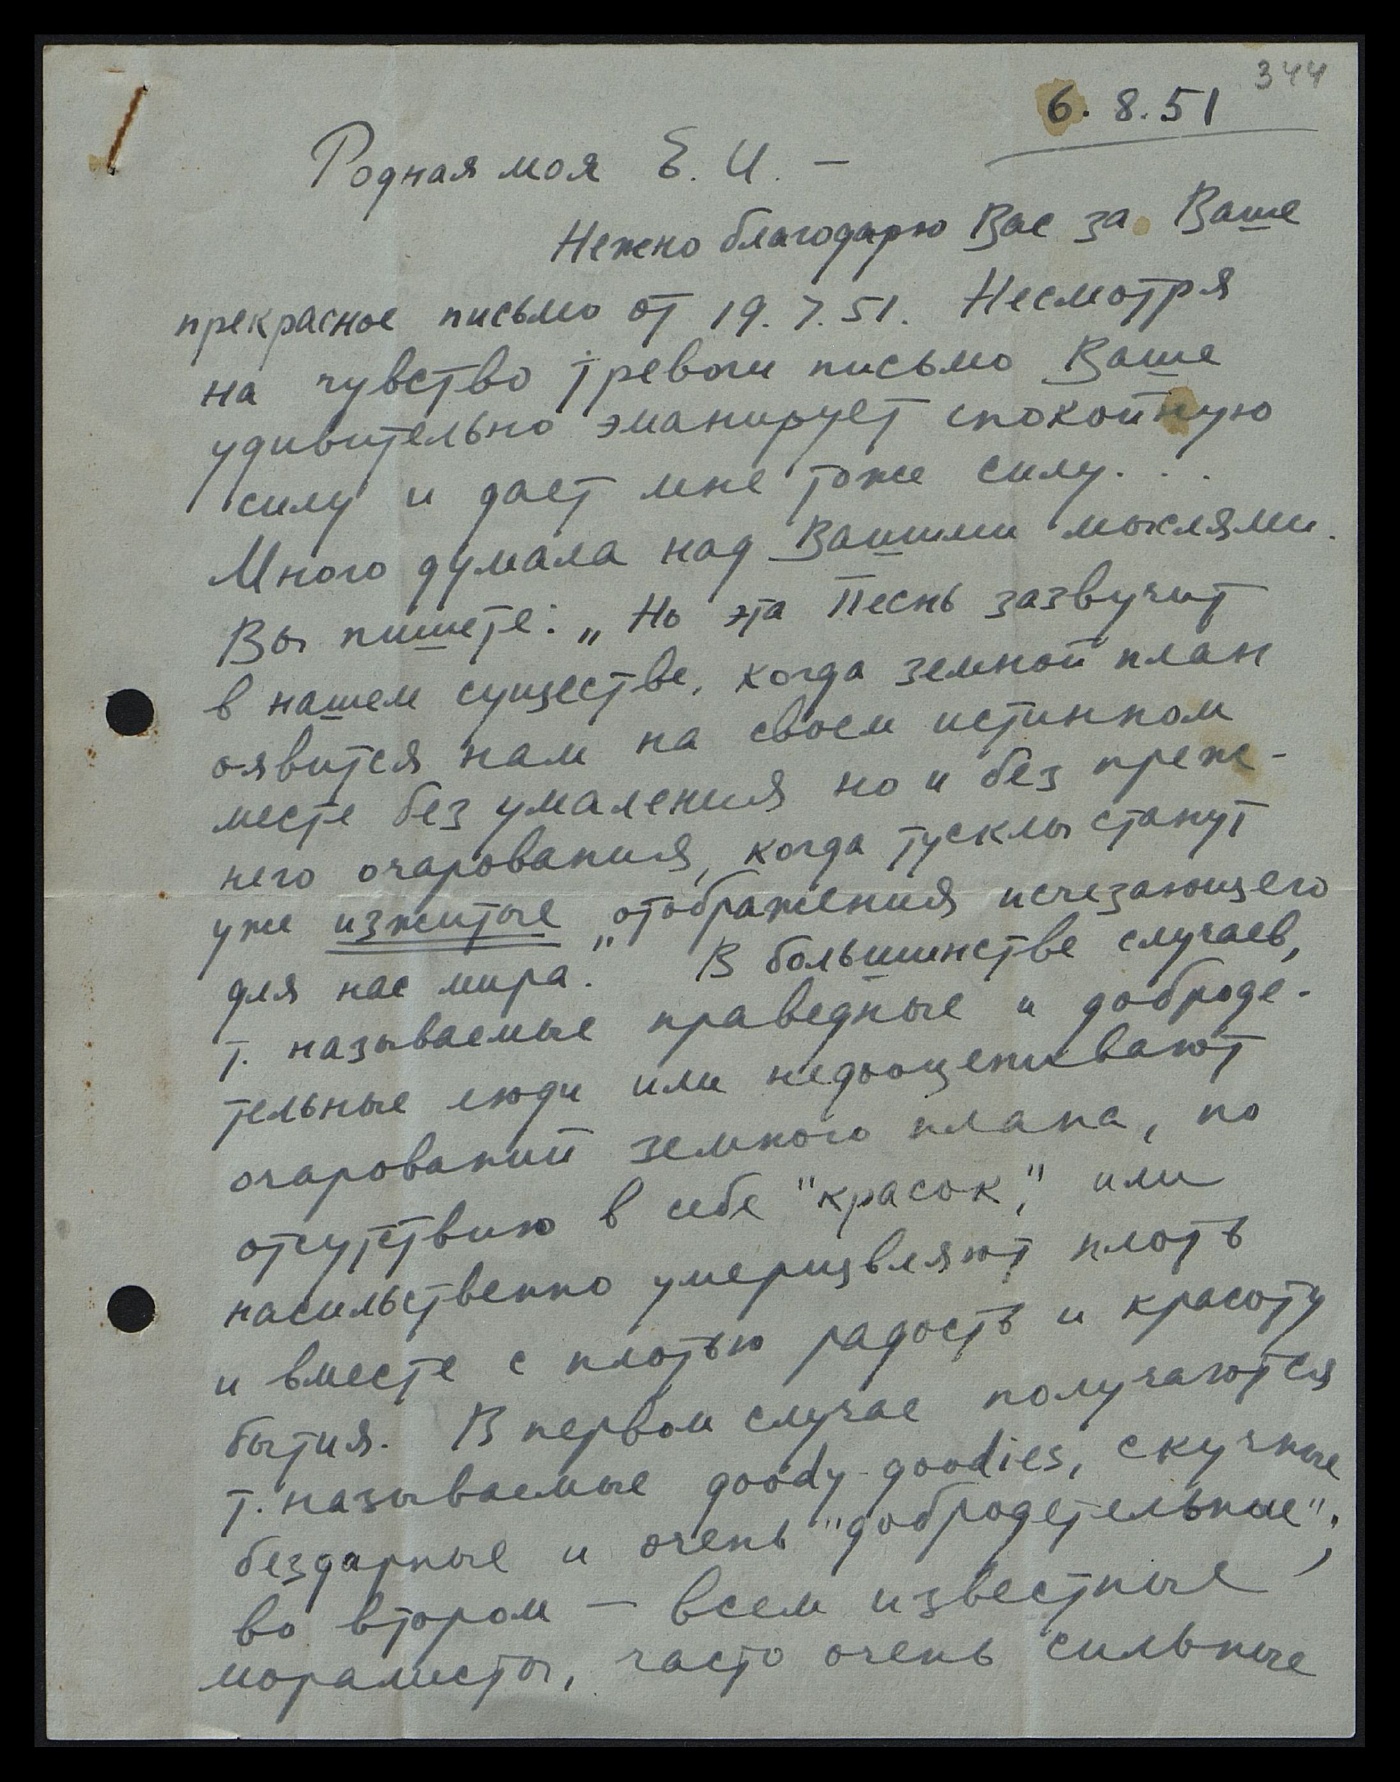 344
6. 8. 51
Родная моя Е. И. —
Нежно благодарю Вас за Ваше
прекрасное письмо от 19. 7. 51. Несмотря
на чувство тревоги письмо Ваше
удивительно эманирует спокойную
силу и дает мне тоже силу. . .
Много думала над Вашими мыслями.
Вы пишете: „Но эта Песнь зазвучит
в нашем существе, когда земной план
оявится нам на своем истинном
месте без умаления но и без преж-
него очарования, когда тусклы станут
уже изжитые „отображения исчезающего
для нас мира. В большинстве случаев,
т. называемые праведные и доброде-
тельные люди или недооценивают
очарований земного плана, по
отсутствию в себе "красок", или
насильственно умерщвляют плоть
и вместе с плотью радость и красоту
бытия. В первом случае получаются
т. называемые goody-goodies, скучные
бездарные и очень "добродетельные";
во втором — всем известные
моралисты, часто очень сильные